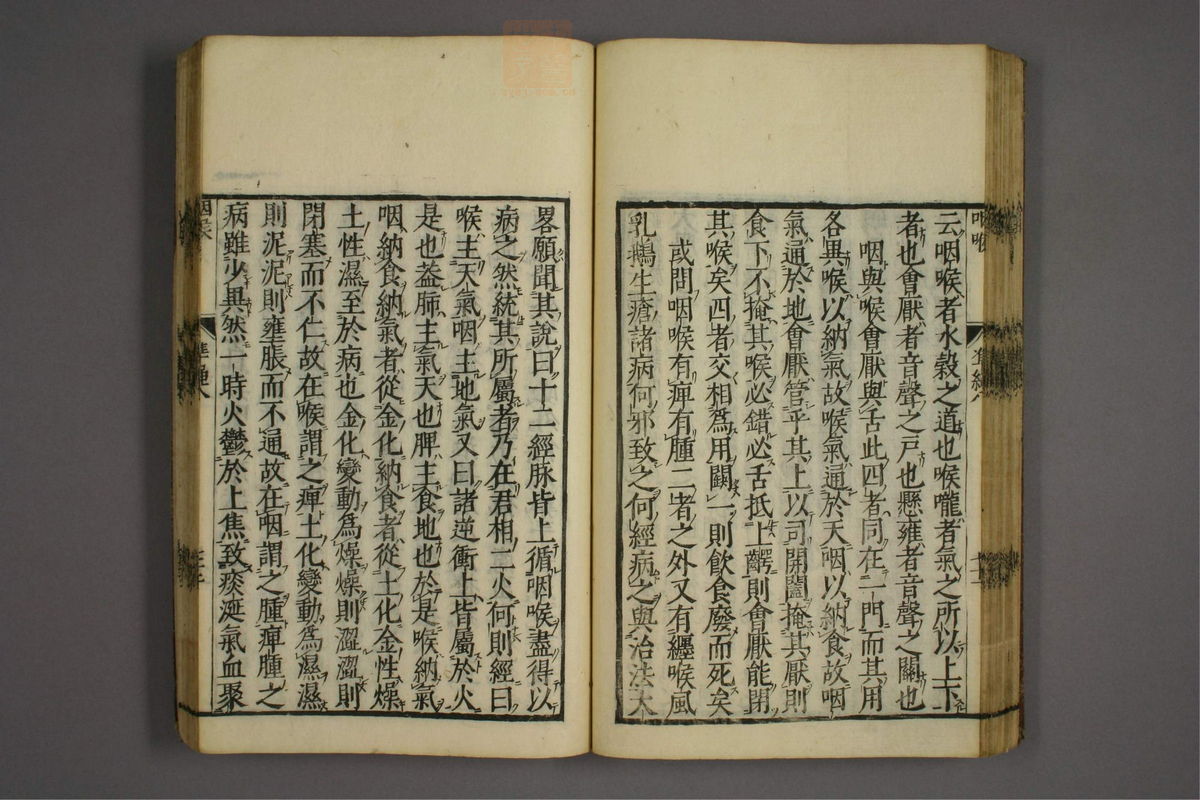 云咽喉者水穀之道也喉嚨者氣之所以上下
者也會厭者音聲之戶也懸雍者音聲之關也
咽與喉會厭與舌此四者同在一門而其用
各異喉以納氣故喉氣通於天咽以納食故咽
氣通於地會厭管乎其上以司開闔掩其厭則
食下不掩其喉必錯必舌抵上齶則會厭能閉
其喉矣四者交相爲用闕一則飲食廢而死矣
或問咽喉有痺有腫二者之外又有纏喉風
乳鵝生瘡諸病何邪致之何經病之與治法大
畧願聞其說曰十二經脉皆上循咽喉盡得以
病之然統其所屬者乃在君相二火何則經曰
喉主天氣咽主地氣又曰諸逆衝上皆屬於火
是也葢肺主氣天也脾主食地也於是喉納氣
咽納食納氣者從金化納食者從土化金性燥
土性濕至於病也金化變動爲燥燥則澀澀則
閉塞而不仁故在喉謂之痺土化變動爲濕濕
則泥泥則壅脹而不通故在咽謂之腫痺腫之
病雖少異然一時火鬱於上焦致痰涎氣血聚